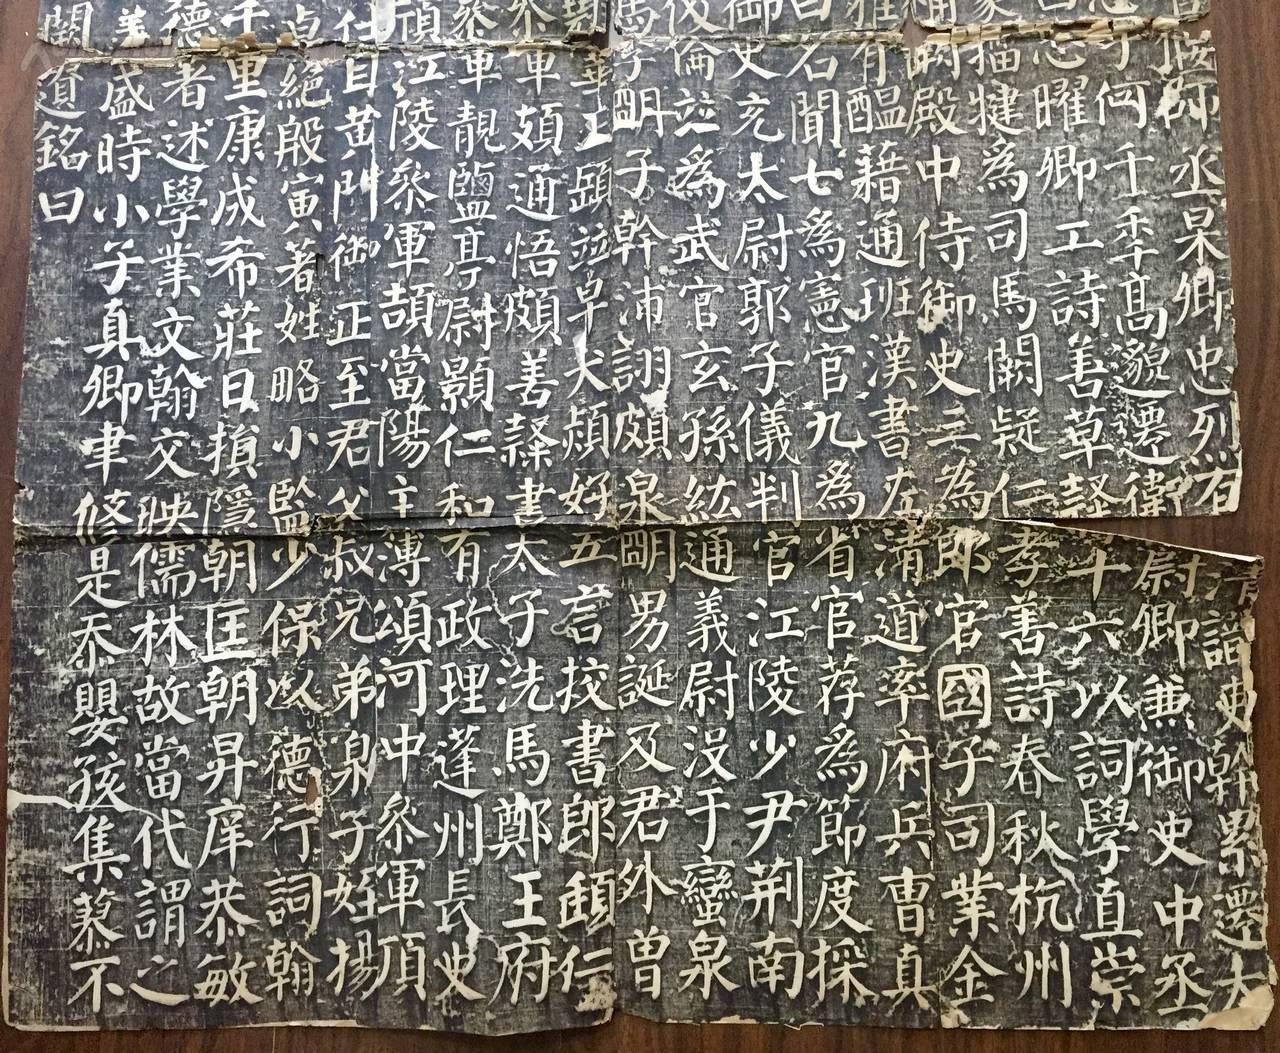 偃師丞杲卿忠烈有清識吏幹累遷太
手何千年高邈遷衛尉卿兼御史中丞
忠曜卿工詩善草隸十六以詞學直崇
攝犍為司馬闕疑仁孝善詩春秋杭州
兩殿中侍御史三為郎官國子司業金
雅有醞藉通班漢書左清道率府兵曹真
曰名聞七為憲官九為省官荐為節度採
御史充太尉郭子儀判官江陵少尹荊南
倫並為武官玄孫紘通義尉沒于蠻泉
馬孚明子幹沛詡頗泉明男誕及君外曾
正顗並早夭熲好五言挍書郎頲仁
參軍頗通悟頗善隸書太子洗馬鄭王府
參軍靚鹽亭尉顥仁和有政理蓬州長史
江陵參軍頡當陽主薄頌河中參軍頂
自黃門御正至君父叔兄弟泉子姪揚
絕殷寅著姓略小監少保以德行詞翰
千里康成希莊日損隱朝匡朝昇庠恭敏
德者述學業文翰交映儒林故當代謂之
盛時小子真卿聿修是忝嬰孩集蓼不
闕遺銘曰